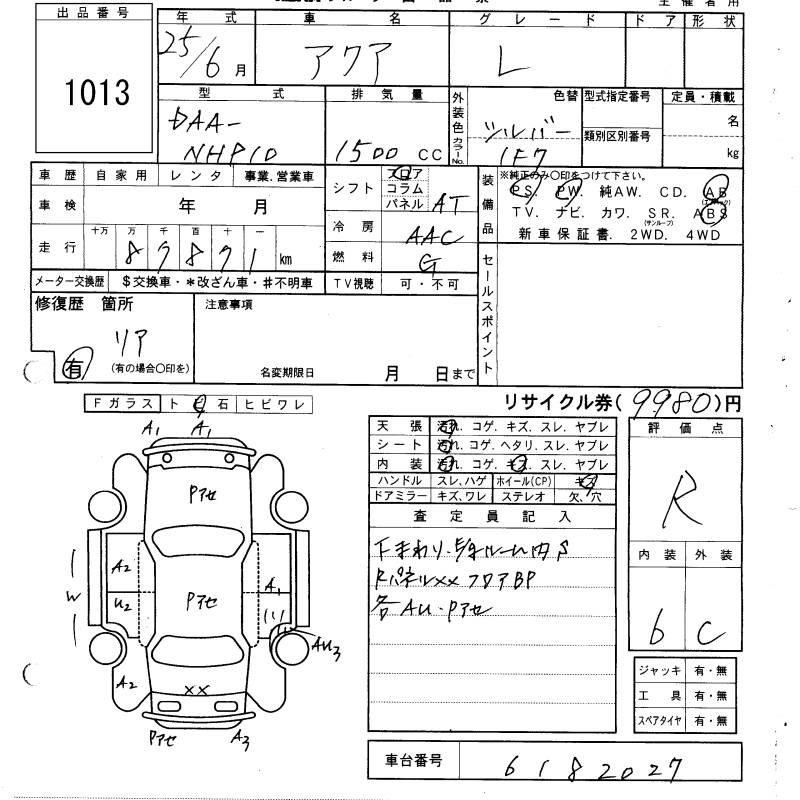 出品番号
1013
年式 車名 グレード ドア 形状
25/6月 アクア L
型式 排気量 外装色 カラーNo. 色替 型式指定番号 定員・積載
DAA- シルバー 類別区別番号 名
NHP10 1500 CC 1F7 kg
車歴 自家用 レンタ 事業.営業車
車検 年 月
走行 十万 万 千 百 十 一
87871 km
メーター交換歴 $交換車・*改ざん車・#不明車
シフト フロア コラム パネル AT
冷房 AAC
燃料 G
TV視聴 可・不可
装備品 ※純正のみ○印をつけて下さい。
PS. PW. 純AW. CD. AB
TV. ナビ. カワ. SR. ABS
(サンルーフ)
新車保証書. 2WD. 4WD
セールスポイント
修復歴 箇所
リア
有 (有の場合○印を)
注意事項
名変期限日 月 日まで
リサイクル券(9980)円
Fガラス ト ビ 石 ヒビワレ
天張 汚れ. コゲ. キズ. スレ. ヤブレ
シート 汚れ. コゲ. ヘタリ. スレ. ヤブレ
内装 汚れ. コゲ. キズ. スレ. ヤブレ
ハンドル スレ, ハゲ ホイール(CP) キズ
ドアミラー キズ, ワレ ステレオ 欠. 穴
査定員記入
下まわり・
Rパネルxx フロアBP
各AU・Pアセ
評価点
R
内装 外装
6 C
ジャッキ 有・無
工具 有・無
スペアタイヤ 有・無
車台番号 6182027
A1 A1
Pアセ
A2
W U2 Pアセ A1
AU3
A2 XX
Pアセ A3